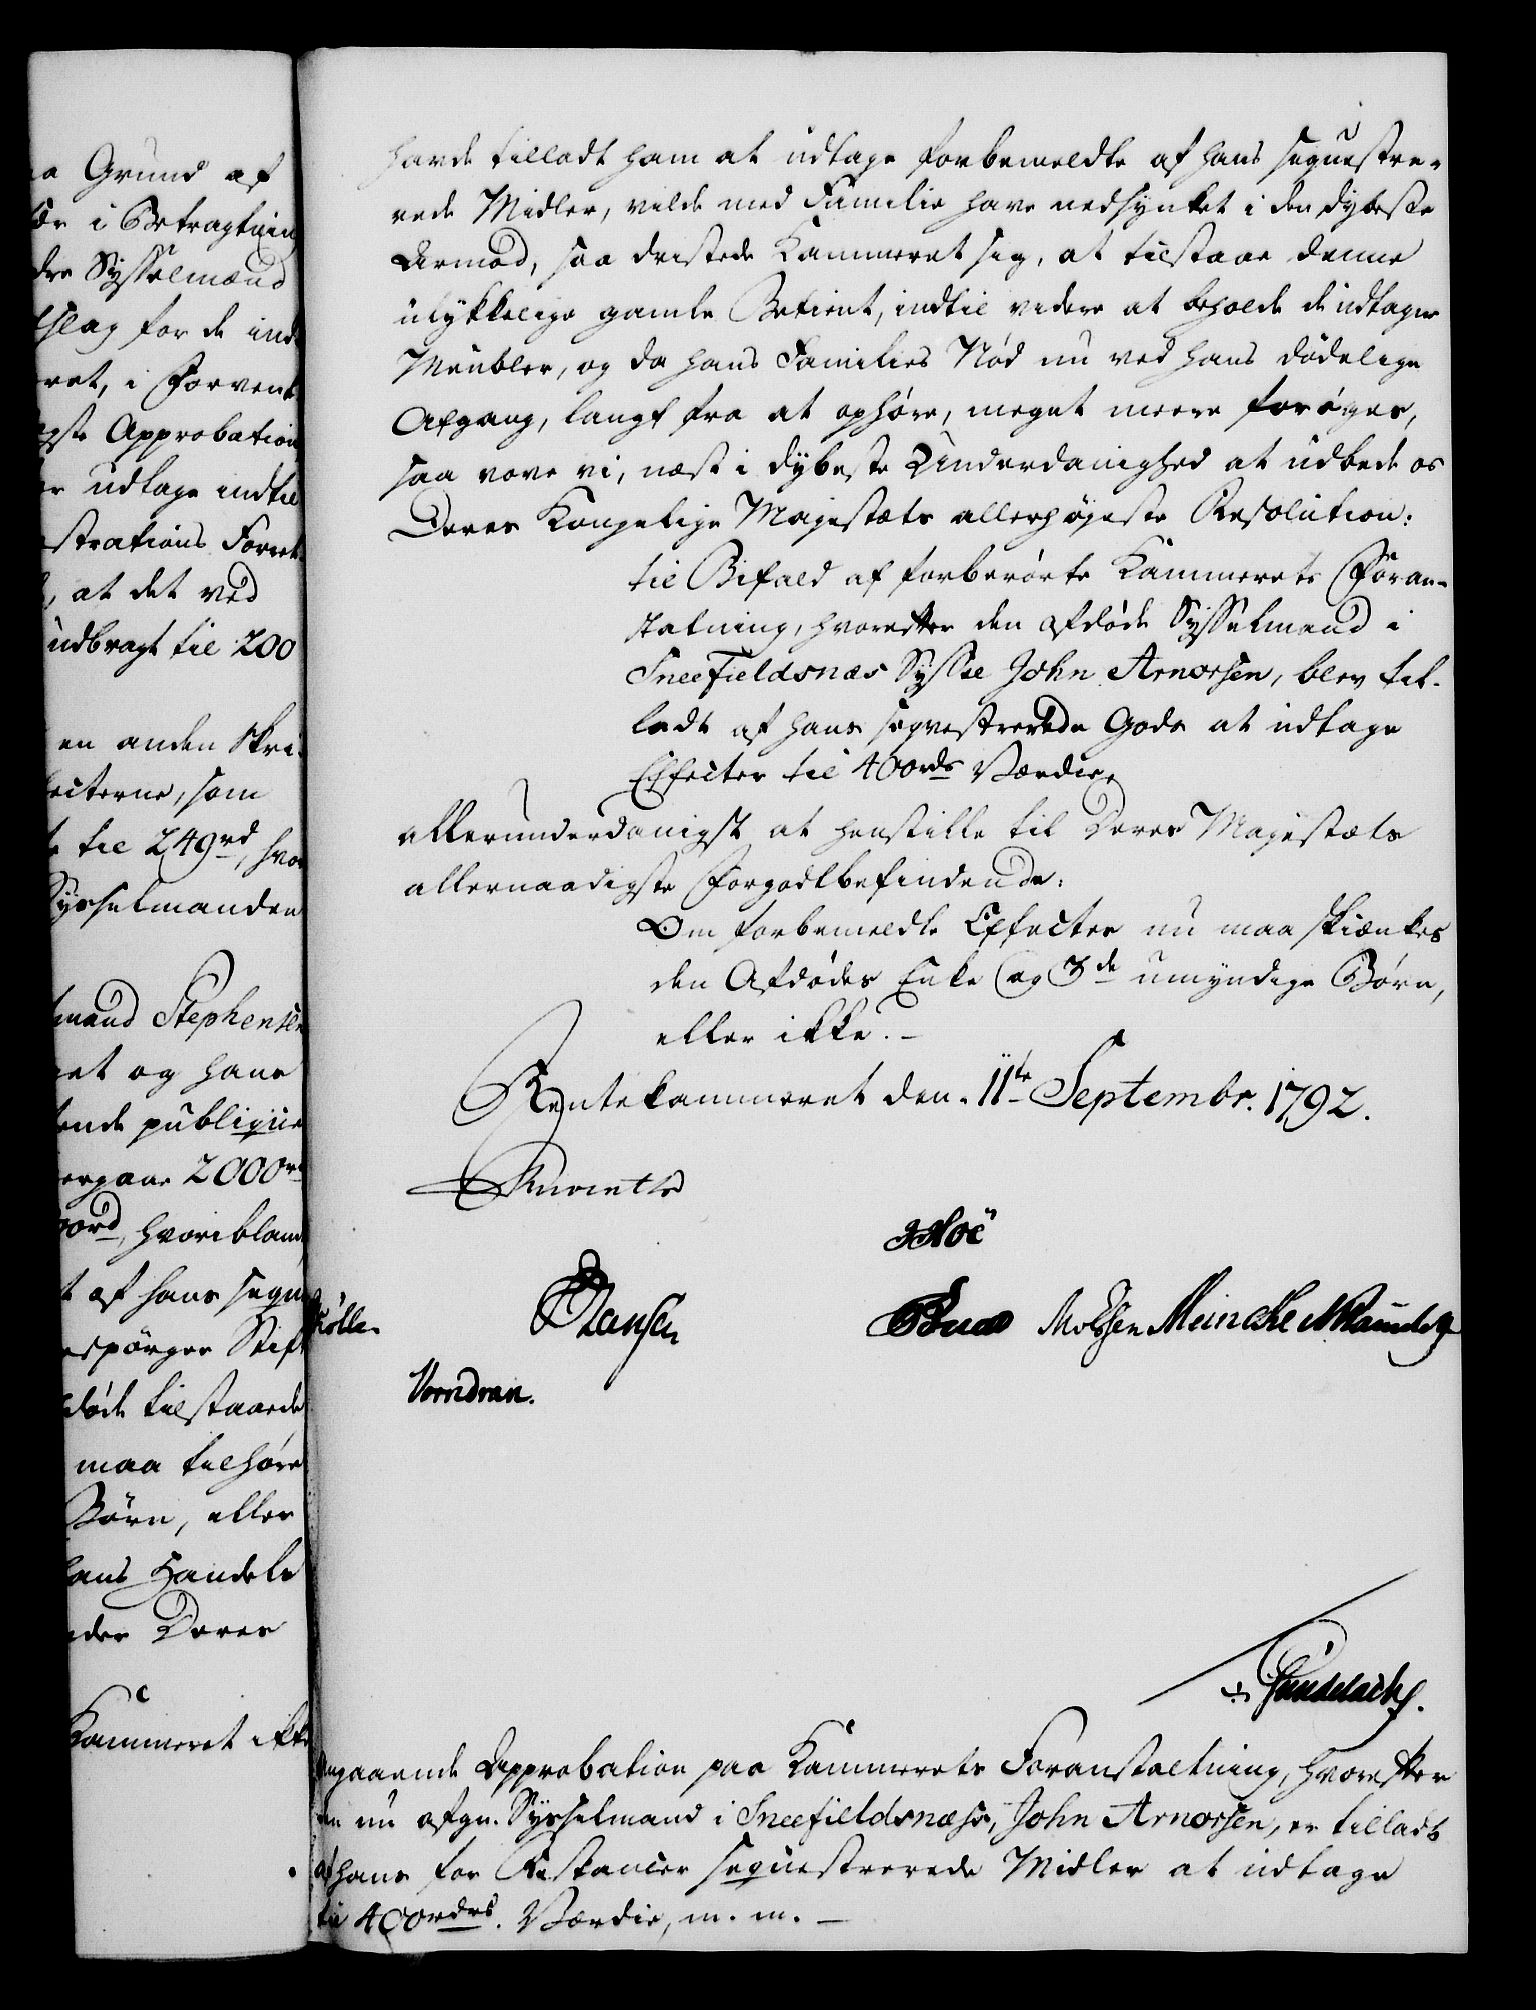 a Grund af
i Betragtning
dre Sysselmænd
slag for de ind
ret, i Forvent
gste Approbation
r udtage indtil
strations Forret
, at det ved
udbragt til 200
en anden Skri
ecterne, som
til 249rd, hvor
Sysselmanden
mand Stephensen
et og hans
ende publique
ergaar 2000rd
hvoriblandt
t af hans sequ
espörger Stif
döde tilstaaede
maa tilhøre
Børn, eller
hans Handels
der Deres
Kammeret ikke
havde tilladt ham at udtage forbemeldte af hans sequestre-
rede Midler, vilde med Familie have nedsynket i den dybeste
Armod, saa dristede Kammeret sig, at tilstaae denne
ulykkelige gamle Betient, indtil videre at beholde de udtagne
Meubler, og da hans Families Nød nu ved hans dödelige
Afgang, langt fra at ophøre, meget meere forøges,
saa vove vi, næst i dybeste Underdanighed at udbede os
Deres Kongelige Majestæts allerhøjeste Resolution:
til Bifald af forberørte Kammerets Foran-
staltning, hvorefter den afdøde Sysselmand i
Sneefieldsnæs Syssel John Arnorsen, blev til-
ladt af hans seqvestrerede Gods at udtage
Effecter til 400rds Værdie,
allerunderdanigst at henstille til Deres Majestæts
allernaadigste Forgodtbefindende:
Om forbemeldte Effecter nu maa skiænkes
den Afdødes Enke og 3de umyndige Børn,
eller ikke. -
Rentekammeret den 11te Septembr. 1792.
Reventlow
Hoë
Hansen
Molssen Meincke
Vorndran.
Gundelach.
Angaaende Approbation paa Kammerets Foranstaltning, hvorefter
den nu afgn. Sysselmand i Sneefieldsnæss, John Arnorsen, er tilladt
af hans for Restancer sequestrerede Midler at udtage
til 400rdrs. Værdie, m. m. -